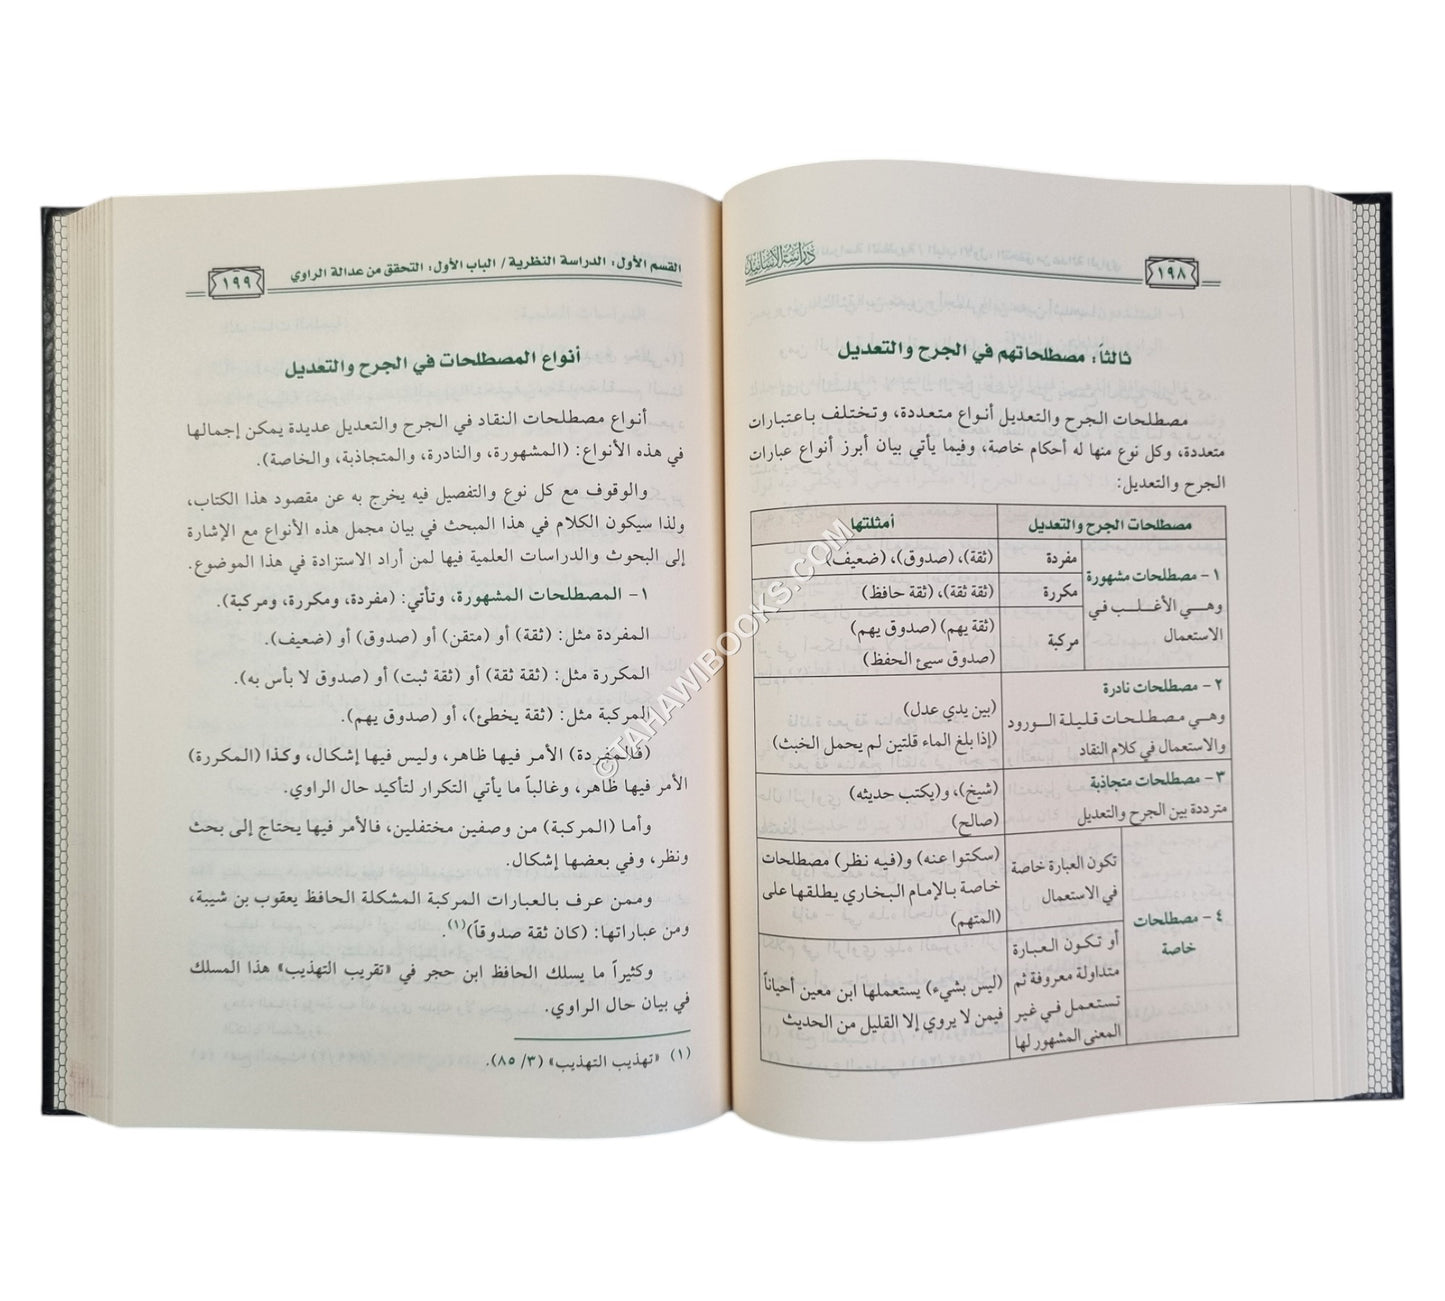 ١٩٨
دراسة الأسانيد
ثالثاً: مصطلحاتهم في الجرح والتعديل
مصطلحات الجرح والتعديل أنواع متعددة، وتختلف باعتبارات
متعددة، وكل نوع منها له أحكام خاصة، وفيما يأتي بيان أبرز أنواع عبارات
الجرح والتعديل:
مصطلحات الجرح والتعديل
أمثلتها
١- مصطلحات مشهورة
وهـي الأغـلـب في
الاستعمال
مفردة
(ثقة)، (صدوق)، (ضعيف)
مكررة
(ثقة ثقة)، (ثقة حافظ)
مركبة
(ثقة يهم) (صدوق يهم)
(صدوق سيئ الحفظ)
٢- مصطلحات نادرة
وهـي مـصـطـلـحـات قـلـيـلـة الـورود
والاستعمال في كلام النقاد
(بين يدي عدل)
(إذا بلغ الماء قلتين لم يحمل الخبث)
٣- مصطلحات متجاذبة
مترددة بين الجرح والتعديل
(شيخ)، و(يكتب حديثه)
(صالح)
٤- مصطلحات
خاصة
تكون العبارة خاصة
في الاستعمال
(سكتوا عنه) و(فيه نظر) مصطلحات
خاصة بالإمام البخاري يطلقها على
(المتهم)
أو تـكـون الـعـبـارة
متداولة معروفة ثم
تـسـتـعـمـل فـي غـيـر
المعنى المشهور لها
(ليس بشيء) يستعملها ابن معين أحياناً
فيمن لا يروي إلا القليل من الحديث
القسم الأول: الدراسة النظرية / الباب الأول: التحقق من عدالة الراوي
١٩٩
أنواع المصطلحات في الجرح والتعديل
أنواع مصطلحات النقاد في الجرح والتعديل عديدة يمكن إجمالها
في هذه الأنواع: (المشهورة، والنادرة، والمتجاذبة، والخاصة).
والوقوف مع كل نوع والتفصيل فيه يخرج به عن مقصود هذا الكتاب،
ولذا سيكون الكلام في هذا المبحث في بيان مجمل هذه الأنواع مع الإشارة
إلى البحوث والدراسات العلمية فيها لمن أراد الاستزادة في هذا الموضوع.
١- المصطلحات المشهورة، وتأتي: (مفردة، ومكررة، ومركبة).
المفردة مثل: (ثقة) أو (متقن) أو (صدوق) أو (ضعيف).
المكررة مثل: (ثقة ثقة) أو (ثقة ثبت) أو (صدوق لا بأس به).
المركبة مثل: (ثقة يخطئ)، أو (صدوق يهم).
(فالمفردة) الأمر فيها ظاهر، وليس فيها إشكال، وكذا (المكررة)
الأمر فيها ظاهر، وغالباً ما يأتي التكرار لتأكيد حال الراوي.
وأما (المركبة) من وصفين مختلفين، فالأمر فيها يحتاج إلى بحث
ونظر، وفي بعضها إشكال.
وممن عرف بالعبارات المركبة المشكلة الحافظ يعقوب بن شيبة،
ومن عباراتها: (كان ثقة صدوقاً)(١).
وكثيراً ما يسلك الحافظ ابن حجر في «تقريب التهذيب» هذا المسلك
في بيان حال الراوي.
(١) «تهذيب التهذيب» (٣/ ٨٥).
©TAHAWIBOOKS.COM